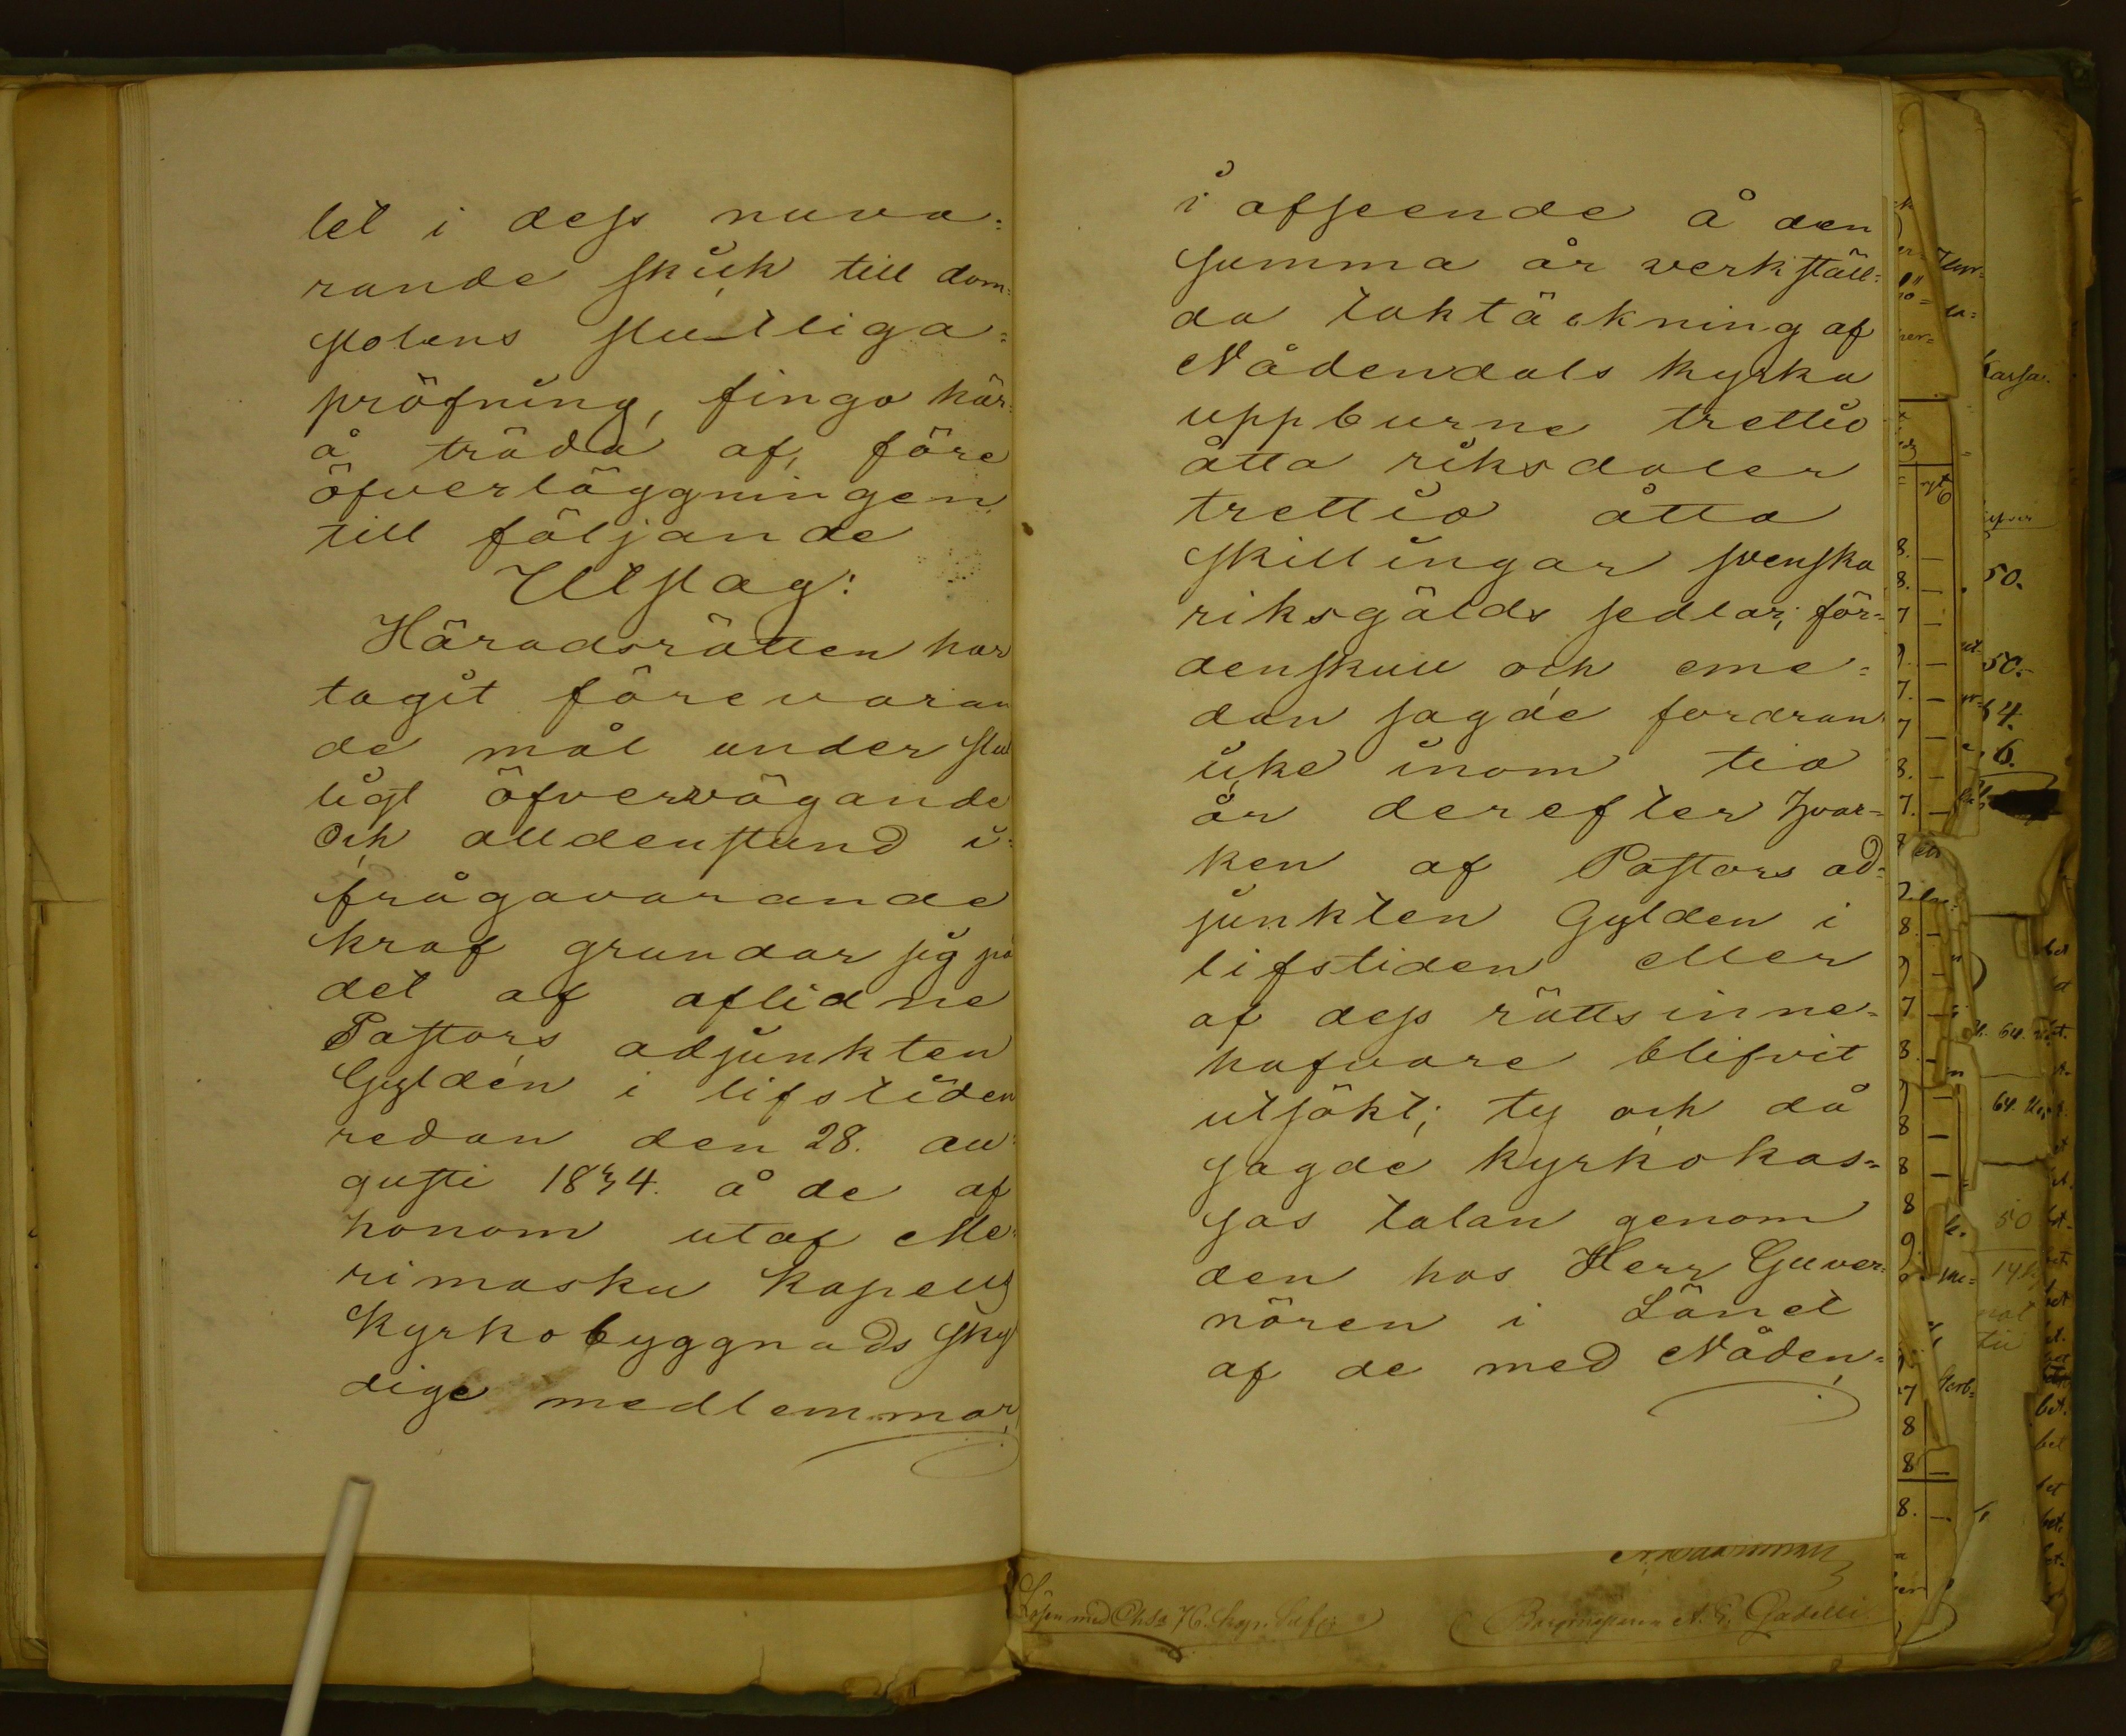 let i dess nuva=
rande skick till dom=
stolens slutliga=
pröfning, fingo här=
å träda af, före
öfverläggningen
till följande
Utslag:
Häradsrätten har
tagit förevaran
de mål under slut
ligt öfvervägande
och alldenstund i=
frågavarande
kraf grundar sig på
det af aflidne
Pastors adjunkten
Gyldén i lifstiden
redan den 28. au=
gusti 1834. å de af
honom utaf Me=
rimasku kapells
kyrkobyggnads sky
dige medlemmar
i afseende å den
samma år verkställ=
da taktäckning af
Nådendals kyrka
uppburne trettio
åtta riksdaler
trettio åtta
skillingar svenska
riksgälds sedlar; för=
denskull och eme=
dan sagde fordran
icke inom tio
år derefter hvar=
ken af Pastors ad=
junkten Gylden i
lifstiden eller
af dess rätts inne=
hafvare blifvit
utsökt; ty och då
sagde kyrkokas=
sas talan genom
den hos Herr Guver=
nören i Länet
af de med Nåden=